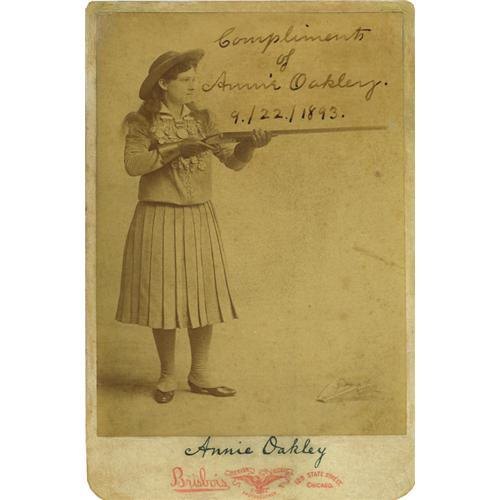 Compliments
of
Annie Oakley.
9./22./1893.
Annie Oakley
Brisbois,
125 STATE STREET
CHICAGO.